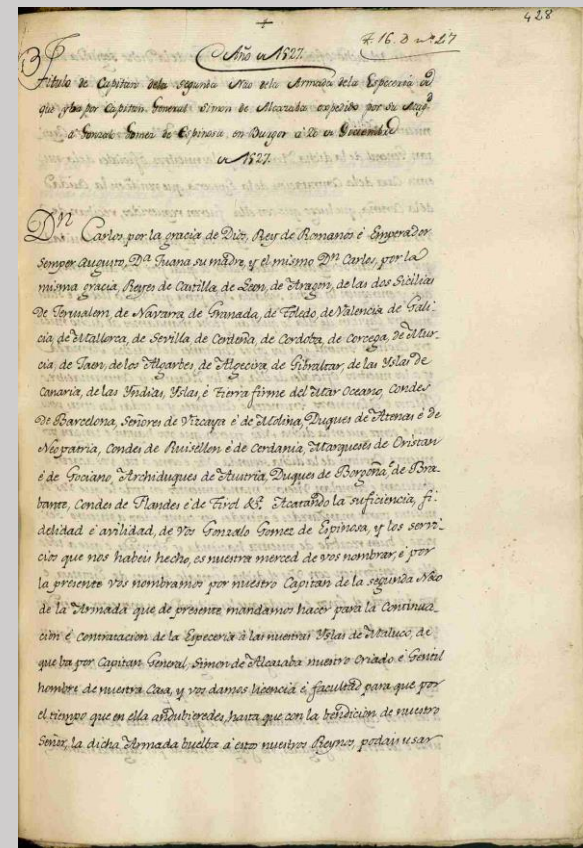 428
Año de 1527.
Titulo de Capitan dela segunda Nao dela Armada dela Especeria
que yba por Capitan General Simon de Alcazaba expedido por su Magd
a Gonzalo Gomez de Espinosa, en Burgos a 20 de Diciembre
de 1527.
Dn Carlos por la gracia de Dios, Rey de Romanos é Emperador
semper augusto, Da Juana su madre, y el mismo Dn Carlos, por la
misma gracia, Reyes de Castilla, de Leon, de Aragon, de las dos Sicilias
de Jerusalem, de Navarra de Granada, de Toledo, de Valencia de Gali-
cia, de Mallorca, de Sevilla de Cerdeña, de Cordoba, de Corcega, de Mur-
cia, de Jaen, de los Algarbes, de Algecira, de Gibraltar, de las Yslas de
Canaria, de las Yndias, Yslas, é Tierra firme del Mar Oceano, Condes
de Barcelona, Señores de Vizcaya é de Molina, Duques de Atenas é de
Neopatria, Condes de Ruisellon é de Cerdania, Marqueses de Oristan
é de Gociano, Archiduques de Austria, Duques de Borgoña, é de Bra-
bante, Condes de Flandes é de Tirol &c. Acatando la suficiencia, fi-
delidad é avilidad, de Vos Gonzalo Gomez de Espinosa, y los servi-
cios que nos habeis hecho, es nuestra merced de vos nombrar, é por
la presente vos nombramos por nuestro Capitan de la segunda Nao
de la Armada que de presente mandamos hacer para la Continua-
cion é Contratacion de la Especeria á las nuestras Yslas de Maluco, de
que ba por Capitan General, Simon de Alcazaba nuestro Criado é Gentil
hombre de nuestra Casa, y vos damos licencia é facultad para que por
el tiempo que en ella andubieredes, hasta que con la bendicion de nuestro
Señor, la dicha Armada buelba á estos nuestros Reynos, podais usar